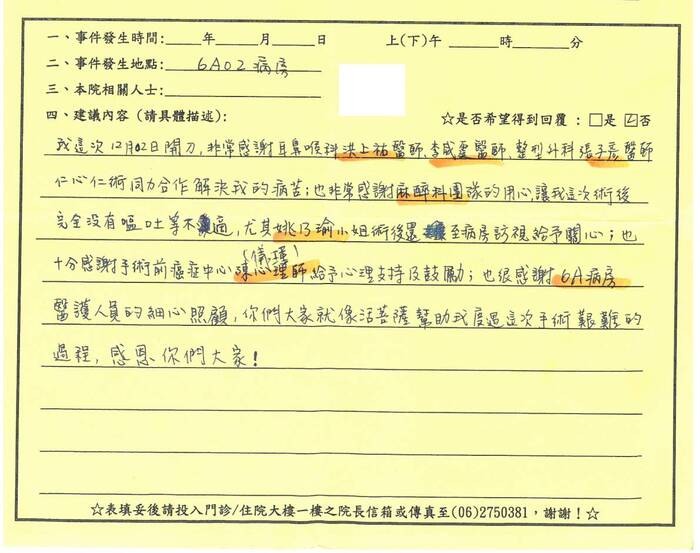 一、事件發生時間:____年____月____日　　上(下)午____時____分
二、事件發生地點: 6A02病房
三、本院相關人士:
四、建議內容（請具體描述）:　　☆是否希望得到回覆：□是 ☑否
我這次12月02日開刀，非常感謝耳鼻喉科洪上祐醫師、李威重醫師、整型外科張子彥醫師
仁心仁術同力合作解決我的病苦；也非常感謝麻醉科團隊的用心，讓我這次術後
完全没有嘔吐等不適，尤其姚乃瑜小姐術後還至病房訪視給予關心；也
十分感謝手術前癌症中心陳(儀瑾)心理師給予心理支持及鼓勵；也很感謝6A病房
醫護人員的細心照顧，你們大家就像活菩薩幫助我度過這次手術艱難的
過程，感恩你們大家！
☆表填妥後請投入門診/住院大樓一樓之院長信箱或傳真至(06)2750381，謝謝！☆